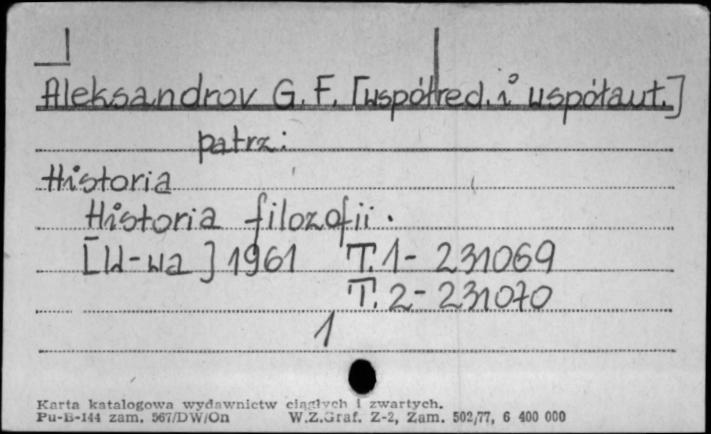 Aleksandrov G. F. [współred. i współaut.]
patrz:
Historia
Historia filozofii.
[W-wa] 1961 T. 1 - 231069
T. 2 - 231070
1
Karta katalogowa wydawnictw ciągłych i zwartych.
Pu-B-144 zam. 567/DW/On W.Z.Graf. Z-2, Zam. 502/77, 6 400 000